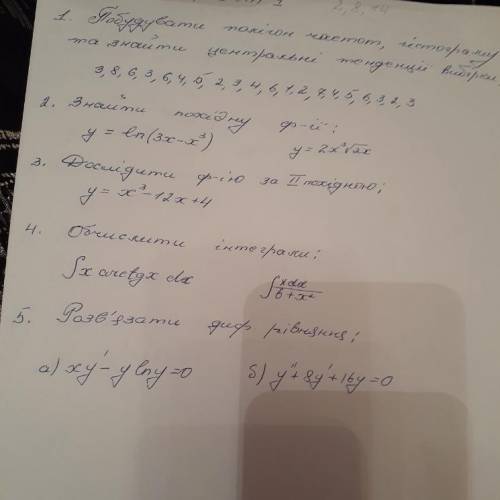 2, 8, 14
1. Побудувати полігон частот, гістограму
та знайти центральні тенденції вибірки
3, 8, 6, 3, 6, 4, 5, 2, 3, 4, 6, 1, 2, 7, 4, 5, 6, 3, 2, 3
2. Знайти похідну ф-ії:
y = ln(3x-x³) y = 2x³√2x
3. Дослідити ф-ію за II похідною;
y = x³-12x+4
4. Обчислити інтеграли;
∫x arctgx dx ∫xdx/(6+x²)
5. Розв'язати диф рівняння;
а) xy' - y lny = 0 б) y"+8y'+16y=0